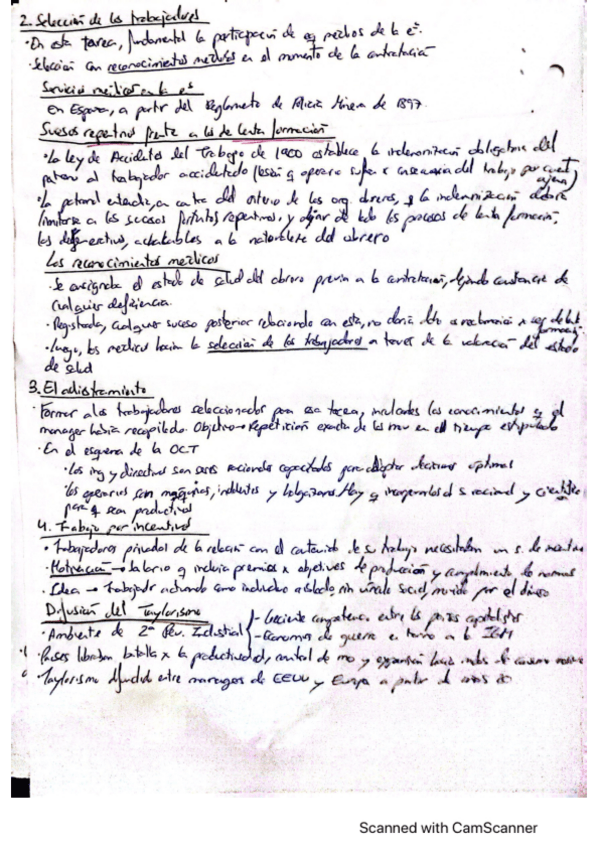 2. Selección de los trabajadores
· En esta tarea, fundamental la participación de eq médicos de la eª.
· Selección con reconocimientos médicos en el momento de la contratación
Servicio médicos en la eª
En España, a partir del Reglamento de Policía Minera de 1897.
Sucesos repentinos frente a los de lenta formación
· La Ley de Accidentes del Trabajo de 1900 establece la indemnización obligatoria del
patrono al trabajador accidentado (lesión q operario sufra x consecuencia del trabajo por cuenta
ajena)
· La patronal entendía, en contra del criterio de las org. obreras, q la indemnización debía
limitarse a los sucesos fortuitos repentinos, y dejar de lado los procesos de lenta formación,
los degenerativos, achacables a la naturaleza del obrero
Los reconocimientos médicos
· Se consignaba el estado de salud del obrero previo a la contratación, dejando constancia de
cualquier deficiencia.
· Registrada, cualquier suceso posterior relacionado con esta, no daría dcho a reclamación x ser de lenta
formación
· Luego, los médicos hacían la selección de los trabajadores a través de la valoración del estado
de salud
3. El adiestramiento
· Formar a los trabajadores seleccionados para esa tarea, los conocimientos q el
manager había recopilado. Objetivo → Repetición exacta de los mov en el tiempo estipulado
· En el esquema de la OCT
· Los ing y directivos son seres racionales capacitados para adoptar decisiones óptimas
· Los operarios son máquinas, indolentes y holgazanes. Hay q incorporarlos al s racional y científico
para q sean productivos
4. Trabajo por incentivos
· Trabajadores privados de la relación con el contenido de su trabajo necesitaban un s. de incentivos
· Motivación → Salario q incluía premios x objetivos de producción y cumplimiento de normas
· Idea → Trabajador actuando como individuo aislado, sin vínculo social, movido por el dinero
Difusión del Taylorismo
· Ambiente de 2ª Rev. Industrial
- Creciente competencia entre los países capitalistas
- Economía de guerra en torno a la IGM
· Países libraban batalla x la productividad, control de mo y expansión hacia
· Taylorismo difundido entre managers de EEUU y Europa a partir de años 20
Scanned with CamScanner